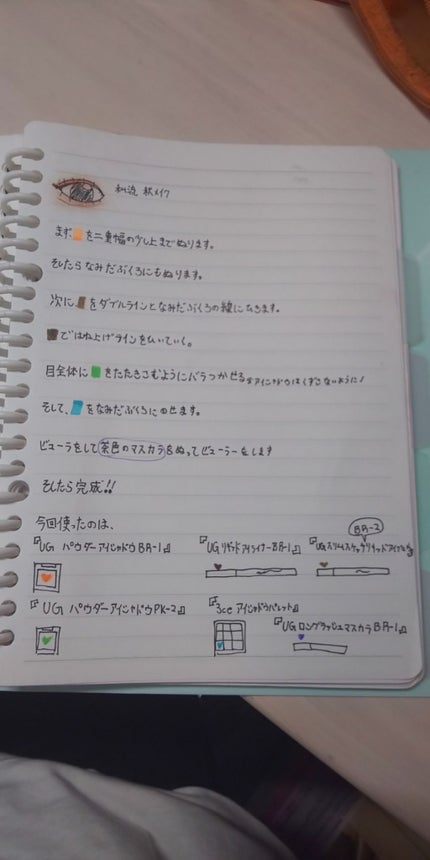 私流 秋メイク
まず を二重幅の少し上までぬります。
そしたらなみだぶくろにもぬります。
次に をダブルラインとなみだぶくろの線にひきます。
ではね上げラインをひいていく。
目全体に をたたきこむようにバラつかせる
そして、 をなみだぶくろにのせます。
ビューラをして茶色のマスカラをぬってビューラーをします
そしたら完成!!
今回使ったのは、
BR-2
『UG パウダーアイシャドウ BR-1』 『UG リキッドアイライナーBR-1』
『UG パウダーアイシャドウPK-2』 『3ce アイシャドウパレット』
『UG ロングラッシュマスカラ BR-1』